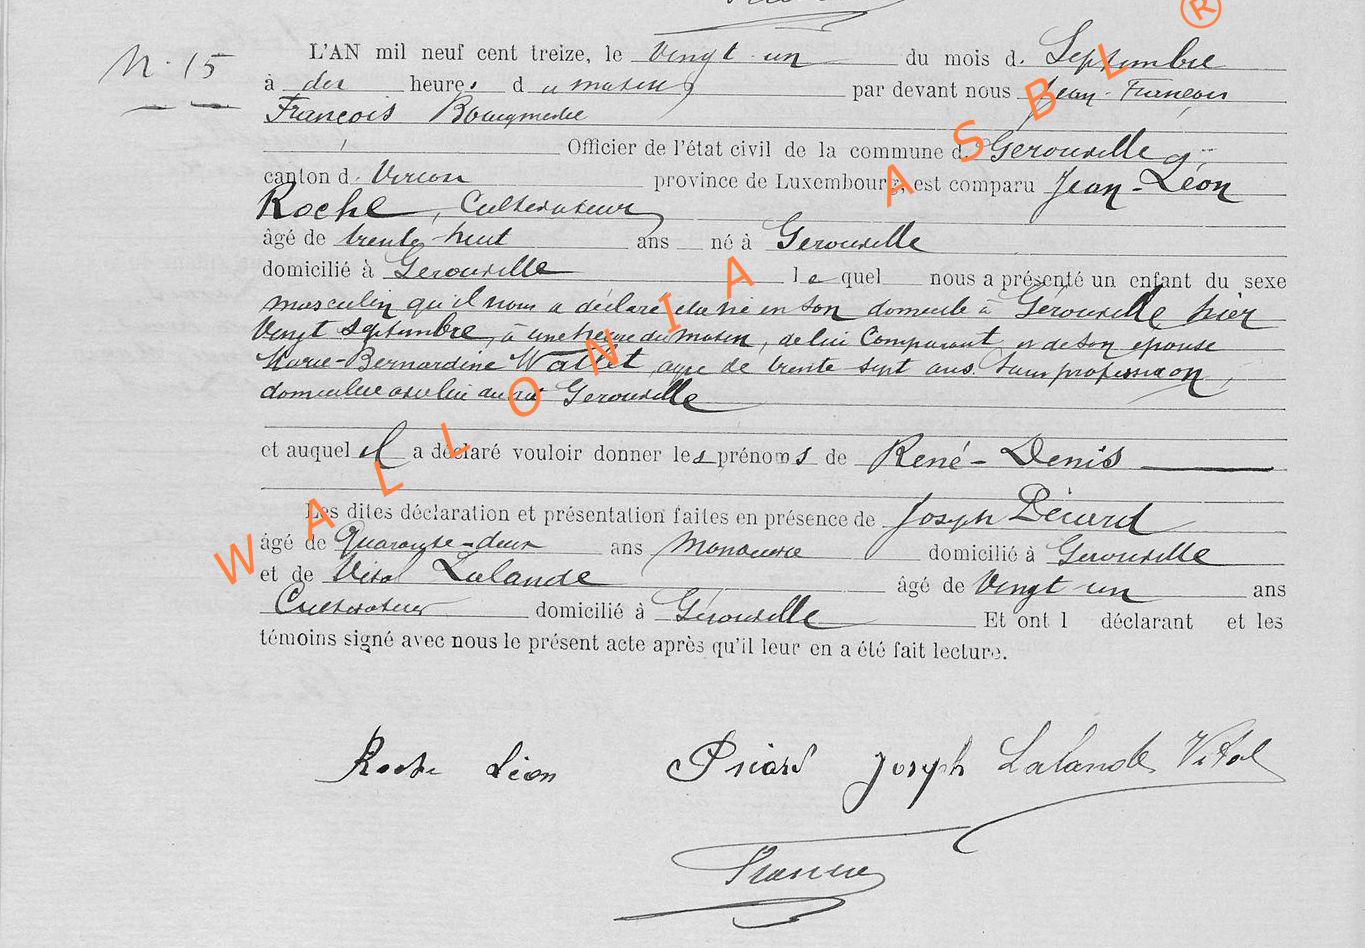 N. 15
L'AN mil neuf cent treize, le Vingt-un du mois d. Septembre
à dix heures du matin par devant nous Jean-François
François Bourgmestre
Officier de l'état civil de la commune d. Gérouville
canton d. Virton province de Luxembourg, est comparu Jean-Léon
Roche, Cultivateur
âgé de trente huit ans né à Gerouville
domicilié à Gerouville lequel nous a présenté un enfant du sexe
masculin qu'il nous a déclaré être né en son domicile à Gérouville hier
Vingt septembre, à une heure du matin, de lui Comparant et de son épouse
Marie-Bernardine Wallet agée de trente sept ans Sans profession,
domiciliée avec lui au dit Gerouville
et auquel il a déclaré vouloir donner les prénoms de René-Denis
Les dites déclaration et présentation faites en présence de Joseph
âgé de Quarante-deux ans Manœuvre domicilié à Gerouville
et de Vital Lalande âgé de Vingt-un ans
Cultivateur domicilié à Gérouville Et ont l déclarant et les
témoins signé avec nous le présent acte après qu'il leur en a été fait lecture.
Roche Léon Joseph Lalande Vital
WALLONIA ASBL ®